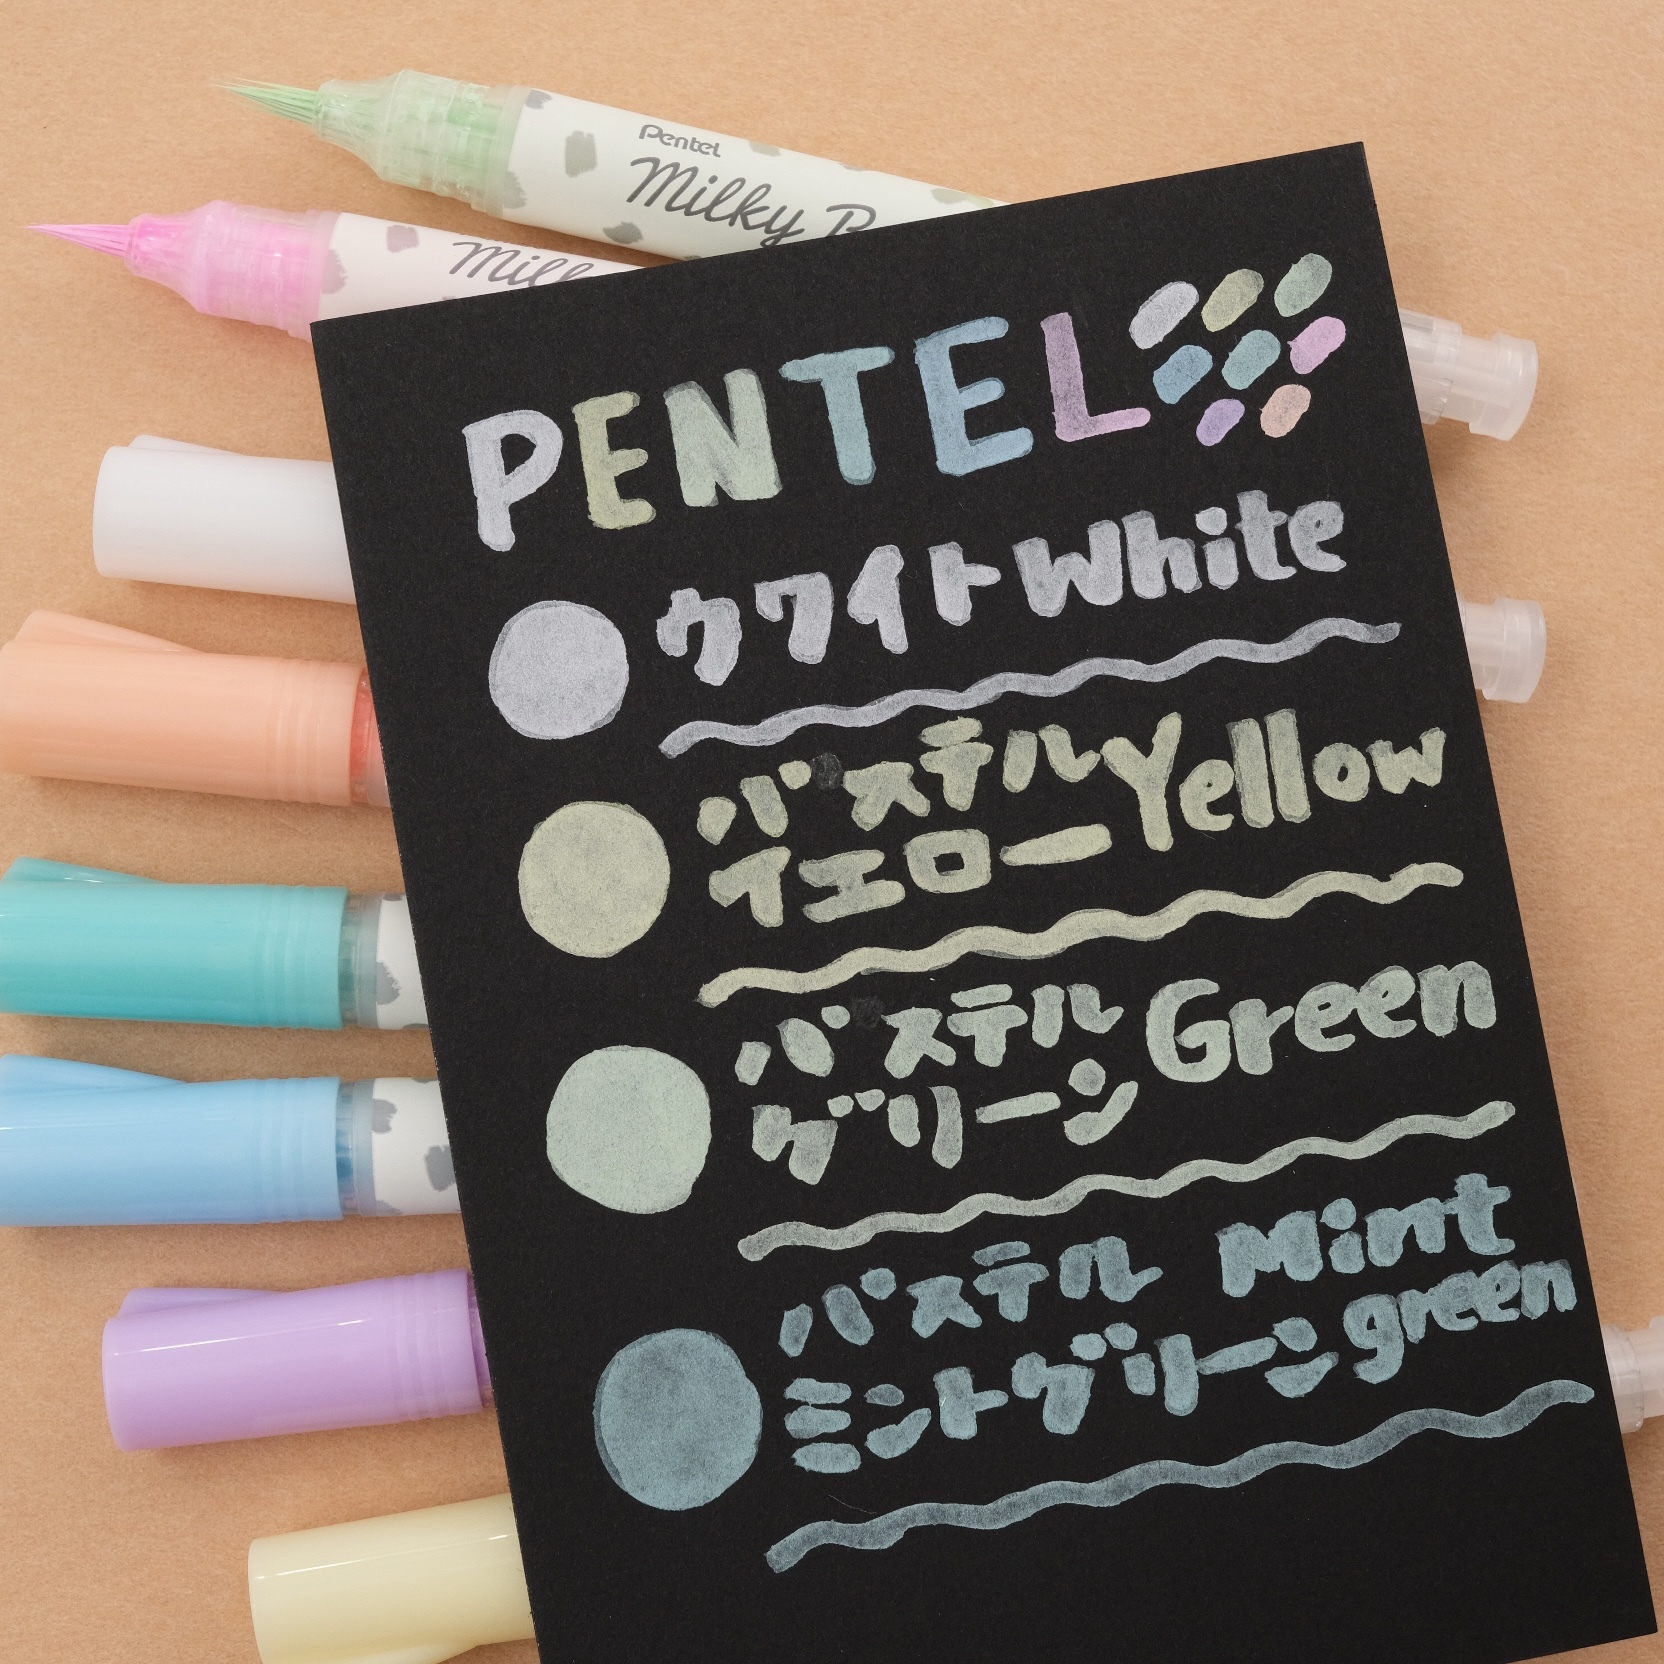 Pentel
Milky
PENTEL
ホワイト White
パステル Yellow
イエロー
パステル Green
グリーン
パステル Mint
ミントグリーン green